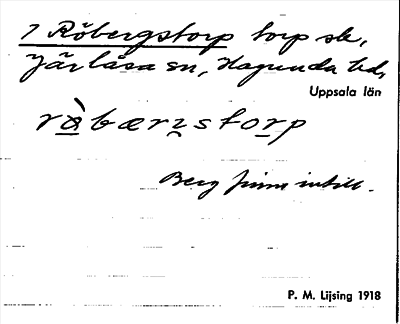 7 Röbergstorp torp sk,
Järlåsa sn, Hagunda hd,
Uppsala län
ràbærnstorp
Berg finns intill.
P. M. Lijsing 1918